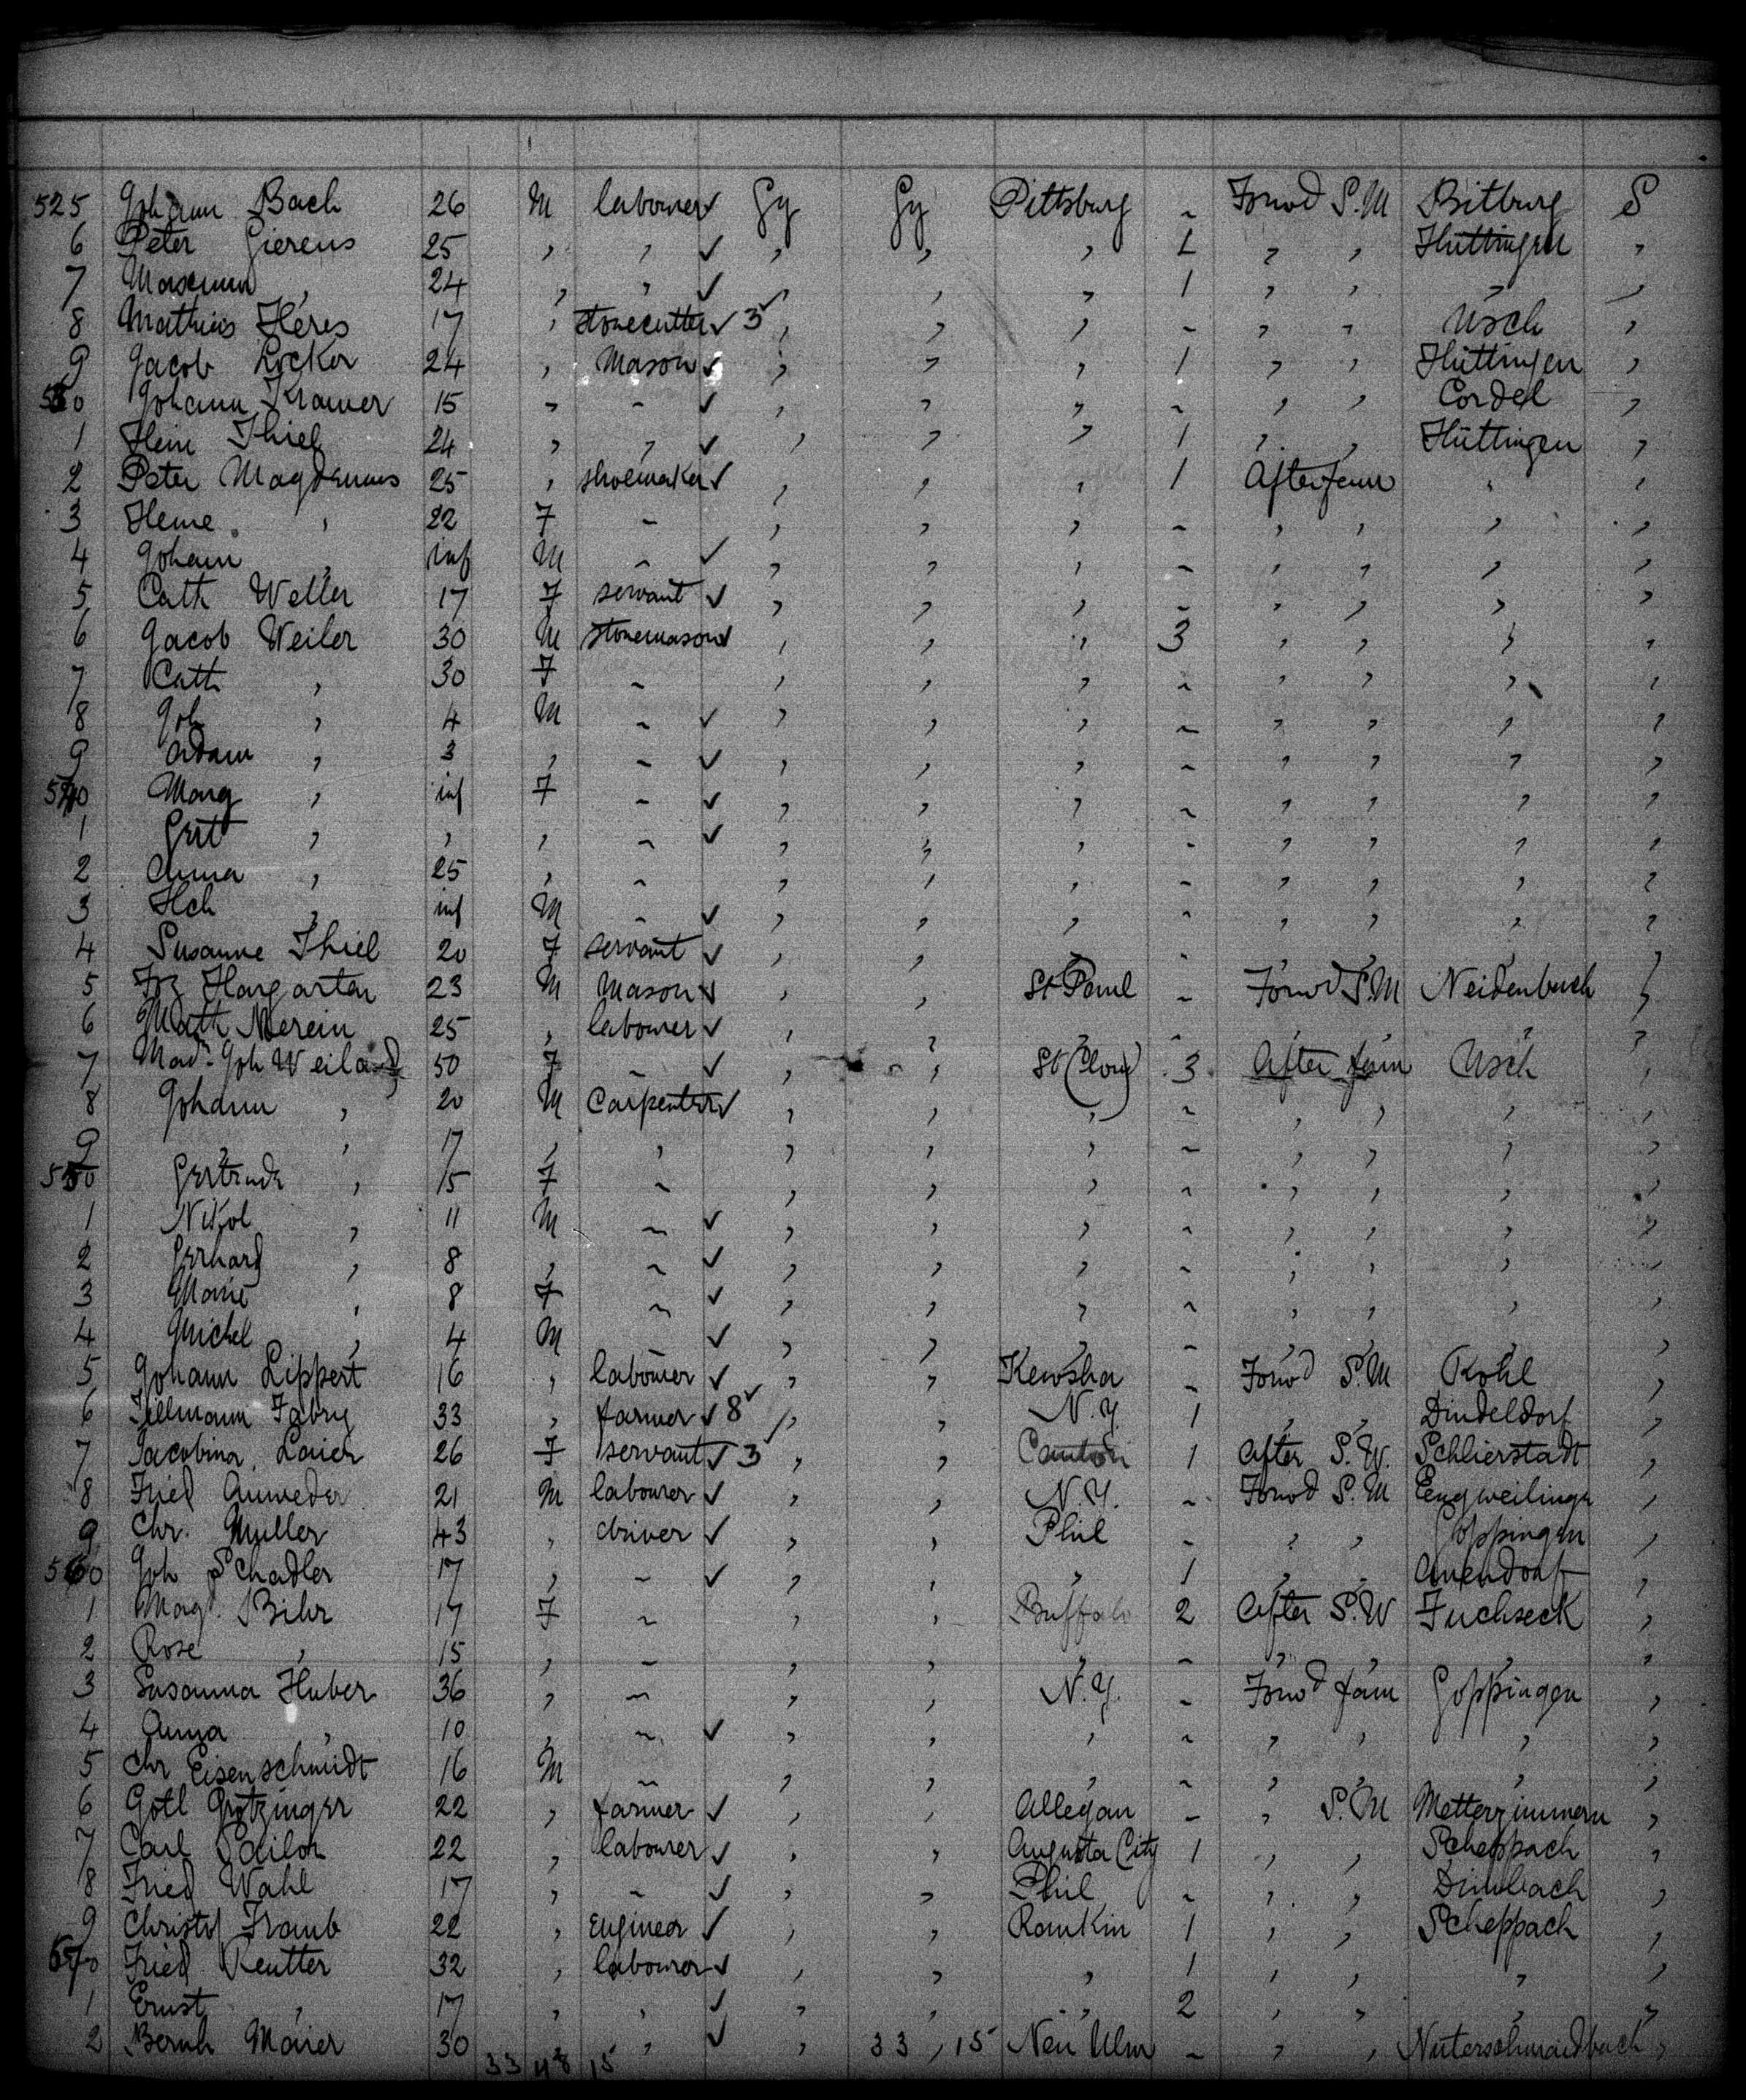 525 Johann Bach 26 M labourer ✓ Gy Gy Pittsburg ~ Forwd S.M Bitburg S
6 Peter Gierens 25 , , ✓ , , , 1 , , Hüttingen ,
7 , 24 , , ✓ , , , 1 , , , ,
8 Mathias Heres 17 , stonecutter ✓ 3 ✓ , , , - , , Usch ,
9 Jacob Locker 24 , Mason ✓ , , , 1 , , Hüttingen ,
530 Johann Kramer 15 , ~ ✓ , , , ~ , , Cordel ,
1 Hein Thiel 24 , , ✓ , , , 1 , , Hüttingen ,
2 Peter 25 , shoemaker ✓ , , , 1 After fam , ,
3 Hene , 22 F ~ , , , ~ , , , ,
4 Johann , inf M ~ ✓ , , , ~ , , , ,
5 Cath Weller 17 F servant ✓ , , , ~ , , , ,
6 Jacob Weiler 30 M stonemason ✓ , , , 3 , , , ,
7 Cath , 30 F ~ , , , ~ , , , ,
8 Joh , 4 M ~ ✓ , , , ~ , , , ,
9 Adam , 3 , ~ ✓ , , , ~ , , , ,
540 Marg , inf F ~ ✓ , , , ~ , , , ,
1 Gert , , , ~ ✓ , , , - , , , ,
2 Anna , 25 , ~ , , , - , , , ,
3 Hch , inf M ~ ✓ , , , ~ , , , ,
4 Susanne Thiel 20 F servant ✓ , , , - , , , ,
5 Frz Hargarten 23 M Mason ✓ , , St Paul ~ Forwd S.M Neidenbach ,
6 Math Merein 25 , labourer ✓ , , , ~ , , , ,
7 Mad. Joh Weiland 50 F ~ ✓ , , St Cloud 3 After fam Usch ,
8 Johann , 20 M Carpenter ✓ , , , ~ , , , ,
9 , , 17 , , , , , ~ , , , ,
550 Gertrude , 15 F ~ , , , ~ , , , ,
1 Nikol , 11 M ~ ✓ , , , ~ , , , ,
2 Gerhard , 8 , ~ ✓ , , , ~ , , , ,
3 Marie , 8 F ~ ✓ , , , ~ , , , ,
4 Michel , 4 M ✓ , , , ~ , , , ,
5 Johann Lippert 16 , labourer ✓ , , Kewsha ~ Forwd S.M Kohl ,
6 Tillmann Fabry 33 , farmer ✓ 8 ✓ , , N.Y. 1 , , Dindeldorf ,
7 Jacobina Laier 26 F servant ✓ 3 ✓ , , Canton 1 After S.W. Schlierstadt ,
8 Fried Auweder 21 M labourer ✓ , , N.Y. ~ Forwd S.M Engweilingn ,
9 Chr. Muller 43 , driver ✓ , , Phil - , , Goppingen ,
560 Joh Schadler 17 , ~ ✓ , , , 1 , , Auendorf ,
1 Magd. Bihr 17 F ~ , , Buffalo 2 After S.W Fuchseck ,
2 Rose , 15 , ~ , , , ~ , , , ,
3 Susanna Huber 36 , ~ , , N.Y. ~ Forwd fam Goppingen ,
4 Anna , 10 , ~ ✓ , , , ~ , , , ,
5 Chr Eisenschmidt 16 M ~ , , , ~ , , , ,
6 Gotl Grotzinger 22 , farmer ✓ , , Allegan - , S.M Metterzimmern ,
7 Carl Sailor 22 , labourer ✓ , , Augusta City 1 , , Scheppach ,
8 Fried Wahl 17 , ~ ✓ , , Phil ~ , , Dimbach ,
9 Christof Traub 22 , Engineer ✓ , , Rankin 1 , , Scheppach ,
570 Fried Reutter 32 , labourer ✓ , , , 1 , , , ,
1 Ernst , 17 , , ✓ , , , 2 , , , ,
2 Bernh Maier 30 , ✓ , 33 , 15 Neu Ulm ~ , , ,
33 48 15